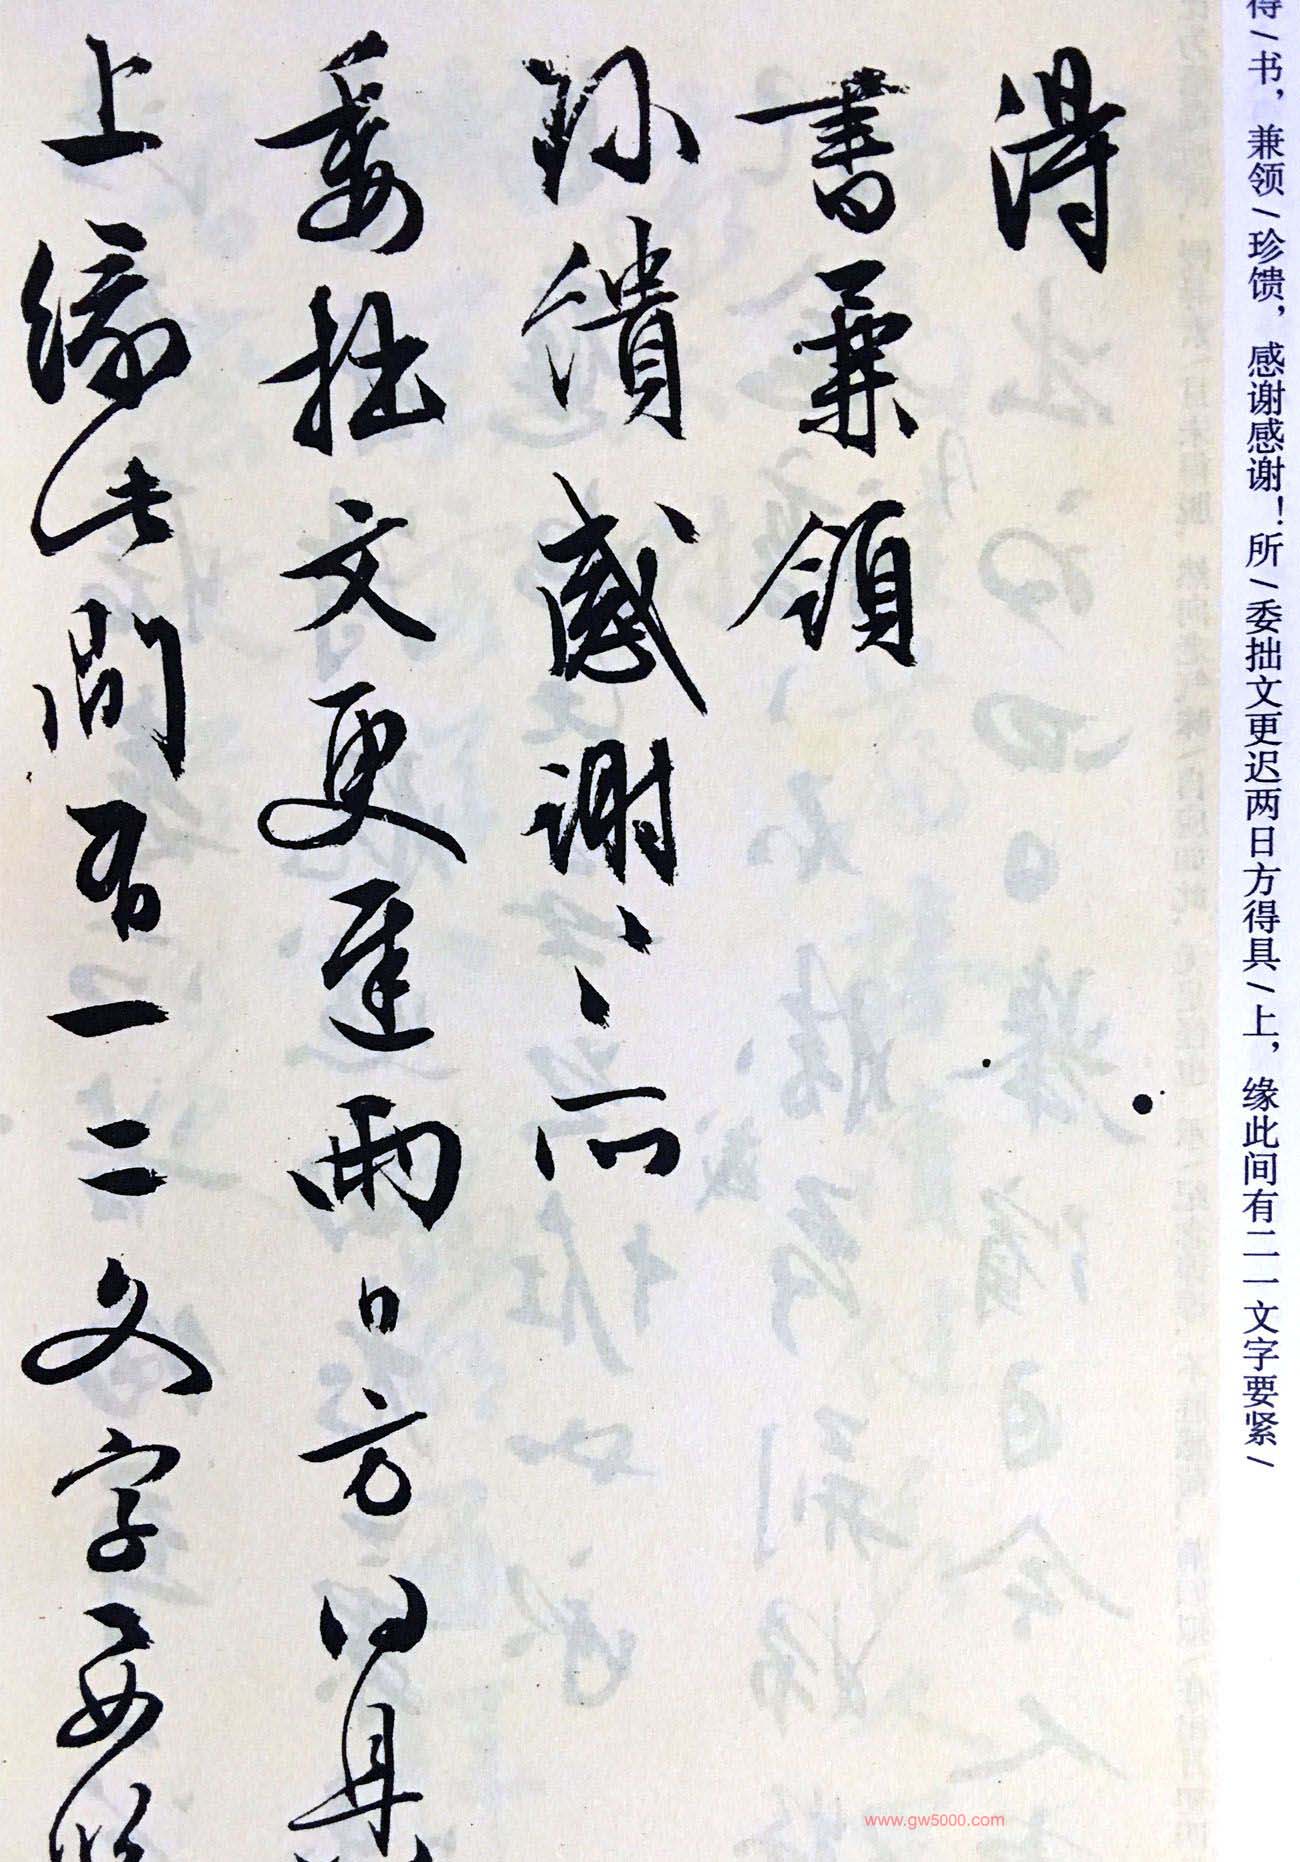 得／书，兼领／珍馈，感谢感谢！所／委拙文更迟两日方得具／上，缘此间有二一文字要紧／
得
書兼領
珎饋感謝〻所
委拙文更遲兩日方得具
上緣此間有一二文字要緊
www.gw5000.com